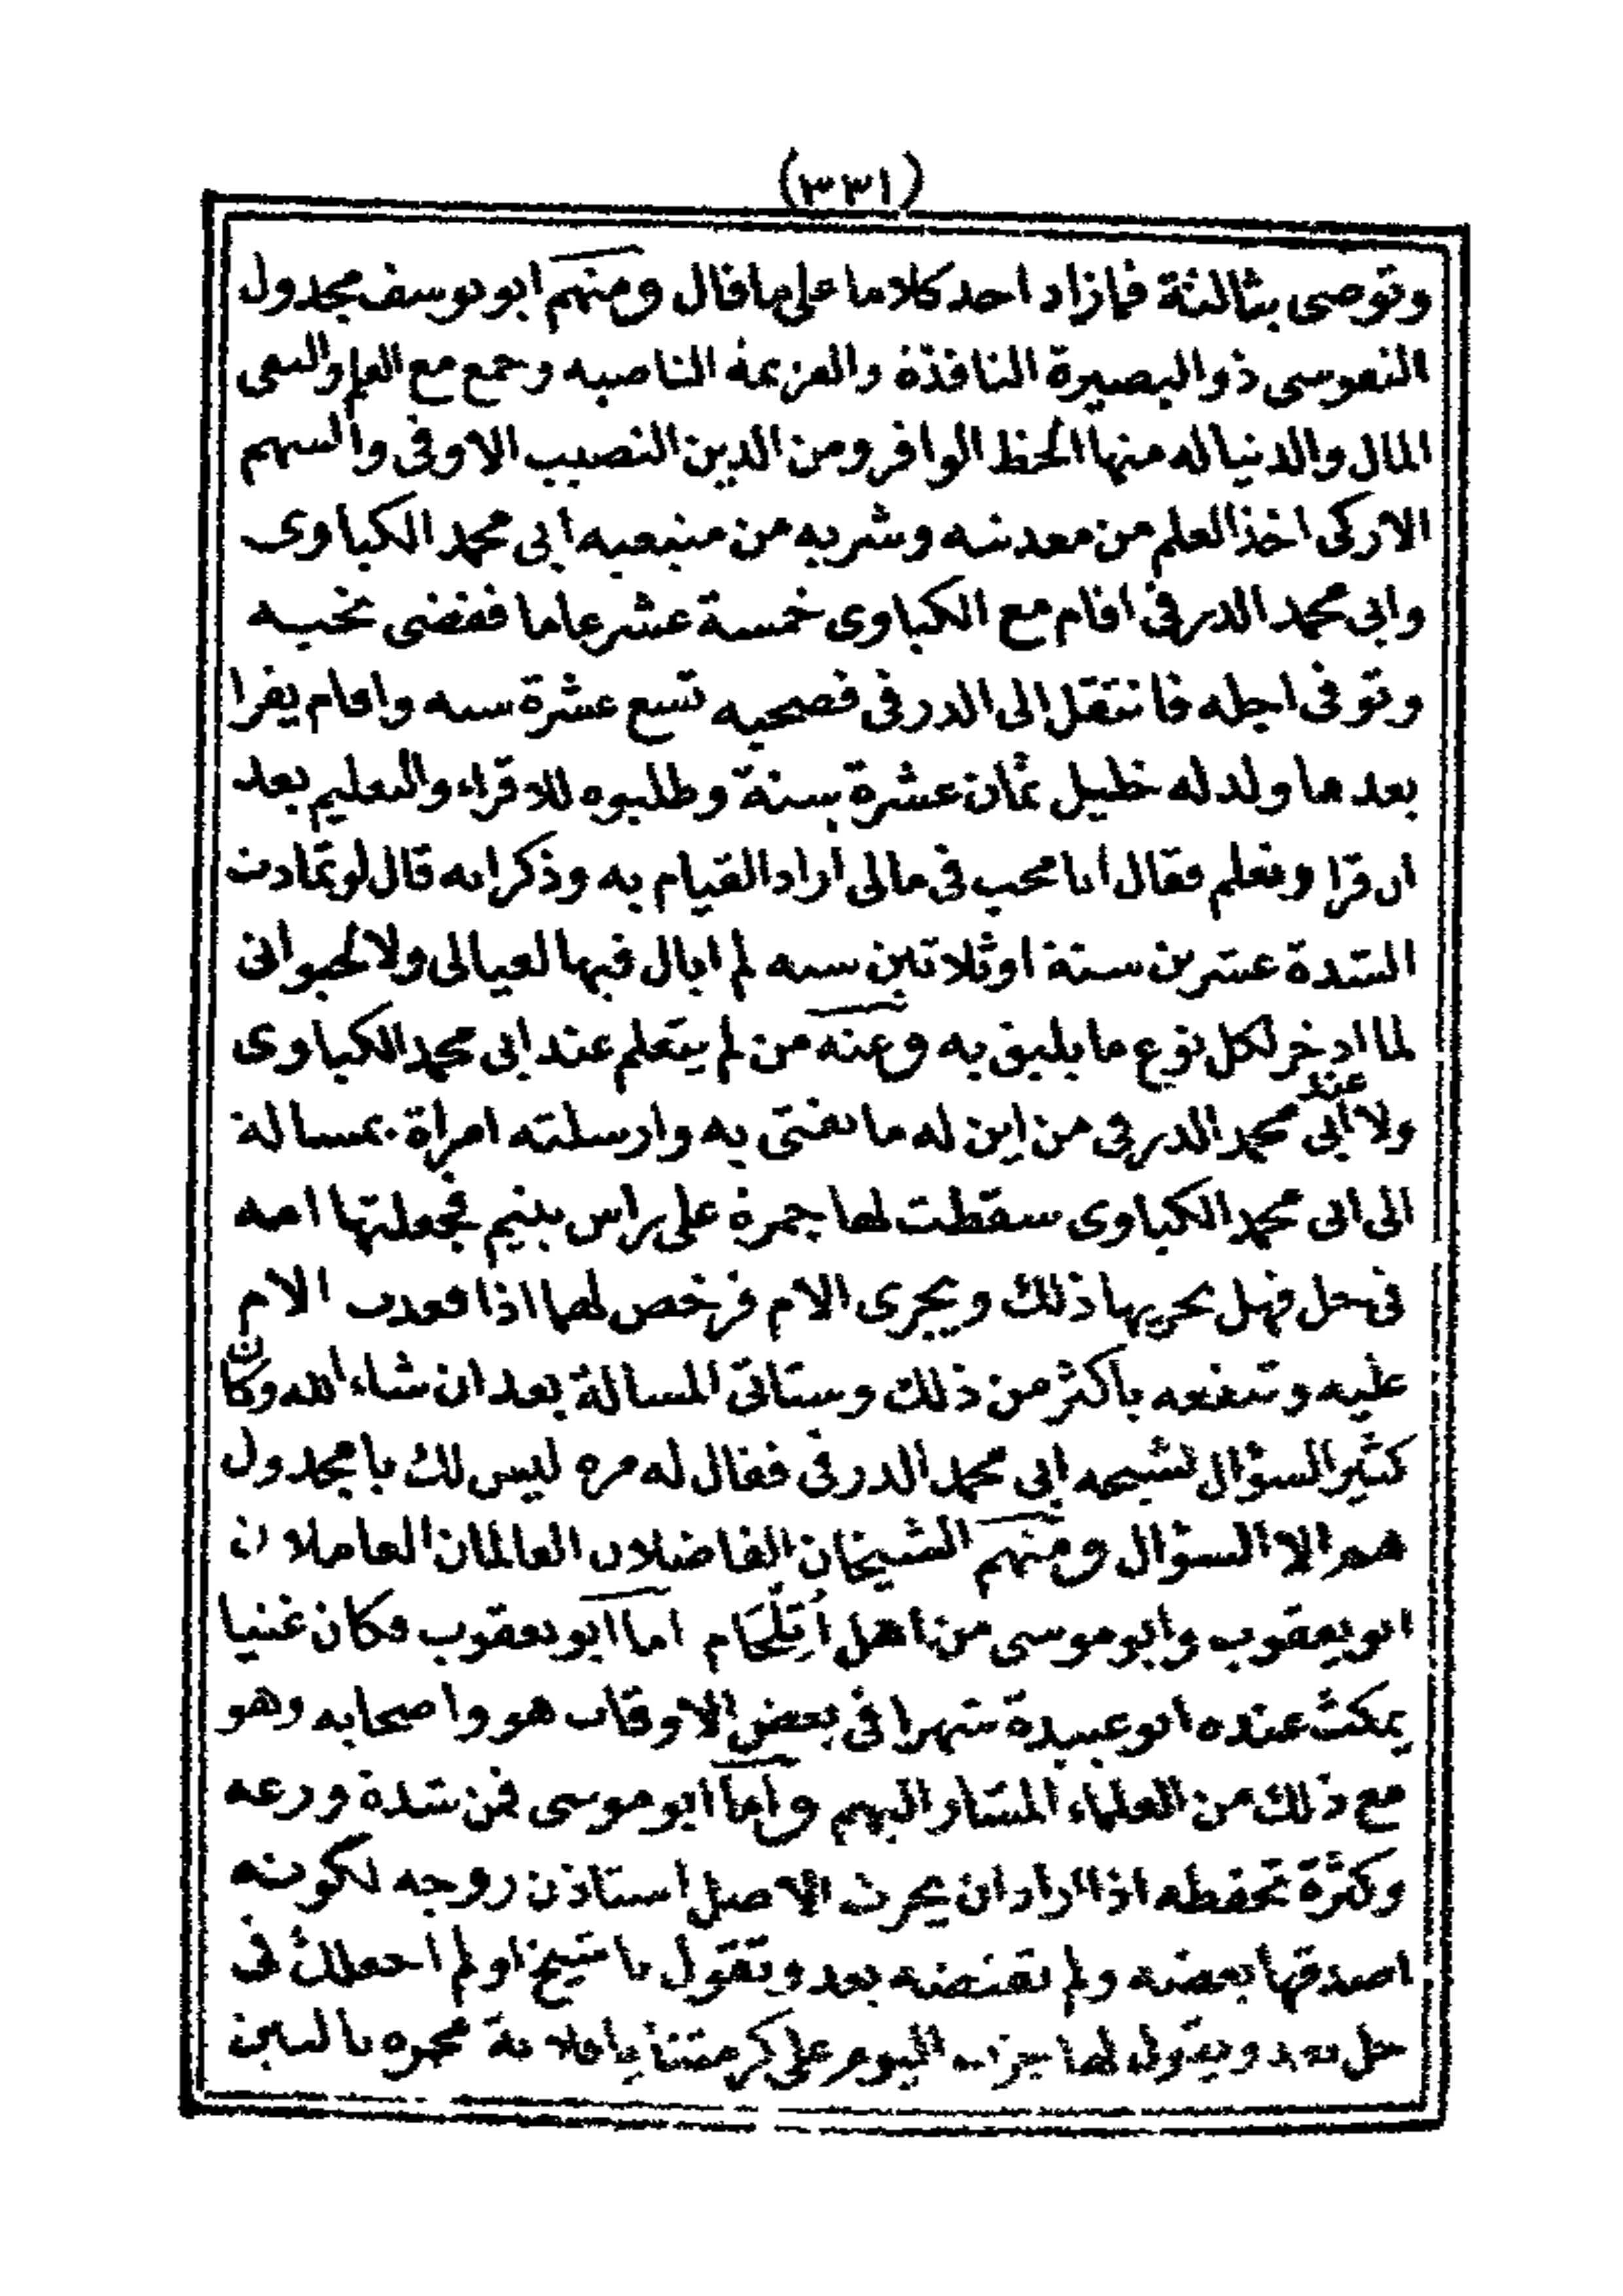 (٣٣١)
وتوصى بثالثة فمازاد احد كلاما على ماقال ومنهم ابو يوسف مجدول
النفوسى ذو البصيرة النافذة والعزيمة الناصبه وجمع مع العلم والسعى
المال والدنيا له منها الحظ الوافر ومن الدين النصيب الاوفى والسهم
الازكى اخذ العلم من معدنه وشربه من منبعيه ابى محمد الكباوى
وابى محمد الدرفى اقام مع الكباوى خمسة عشر عاما فقضى نحبه
وتوفى اجله فانتقل الى الدرفى فصحبه تسع عشرة سنه واقام يقرا
بعد ما ولد له خليل ثمان عشرة سنة وطلبوه للاقراء والتعليم بعد
ان قرا وتعلم فقال انا محب فى مالى اراد القيام به وذكر انه قال لو تمادت
الشدة عشرين سنة او ثلاثين سنه لم ابال فيها لعيالى ولا لحيوانى
لما ادخر لكل نوع ما يليق به وعنه من لم يتعلم عند ابى محمد الكباوى
ولا عند ابى محمد الدرفى من اين له ما يفتى به وارسلته امراة بمسالة
الى ابى محمد الكباوى سقطت لها جمرة على راس يتيم فجعلتها امه
فى حل فهل يجزيها ذلك ويجزى الام فرخص لهما اذا قعدت الام
عليه وتنفعه باكثر من ذلك وستاتى المسالة بعد ان شاء الله وكان
كثير السؤال لشيخه ابى محمد الدرفى فقال له مره ليس لك يا مجدول
هم الا السؤال ومنهم الشيخان الفاضلان العالمان العاملان
ابو يعقوب وابو موسى من اهل اَتِلْحَام اما ابو يعقوب فكان غنيا
يمكث عنده ابو عبيدة شهرا فى بعض الاوقات هو واصحابه وهو
مع ذلك من العلماء المشار اليهم واما ابو موسى فمن شدة ورعه
وكثرة تحفظه اذا اراد ان يحرث الاصل استاذن زوجه لكونه
اصدقها بعضه ولم تقتضه بعد وتقول يا شيخ اولم اجعلك فى
حل بعد ويقول لها اليوم على بالتين